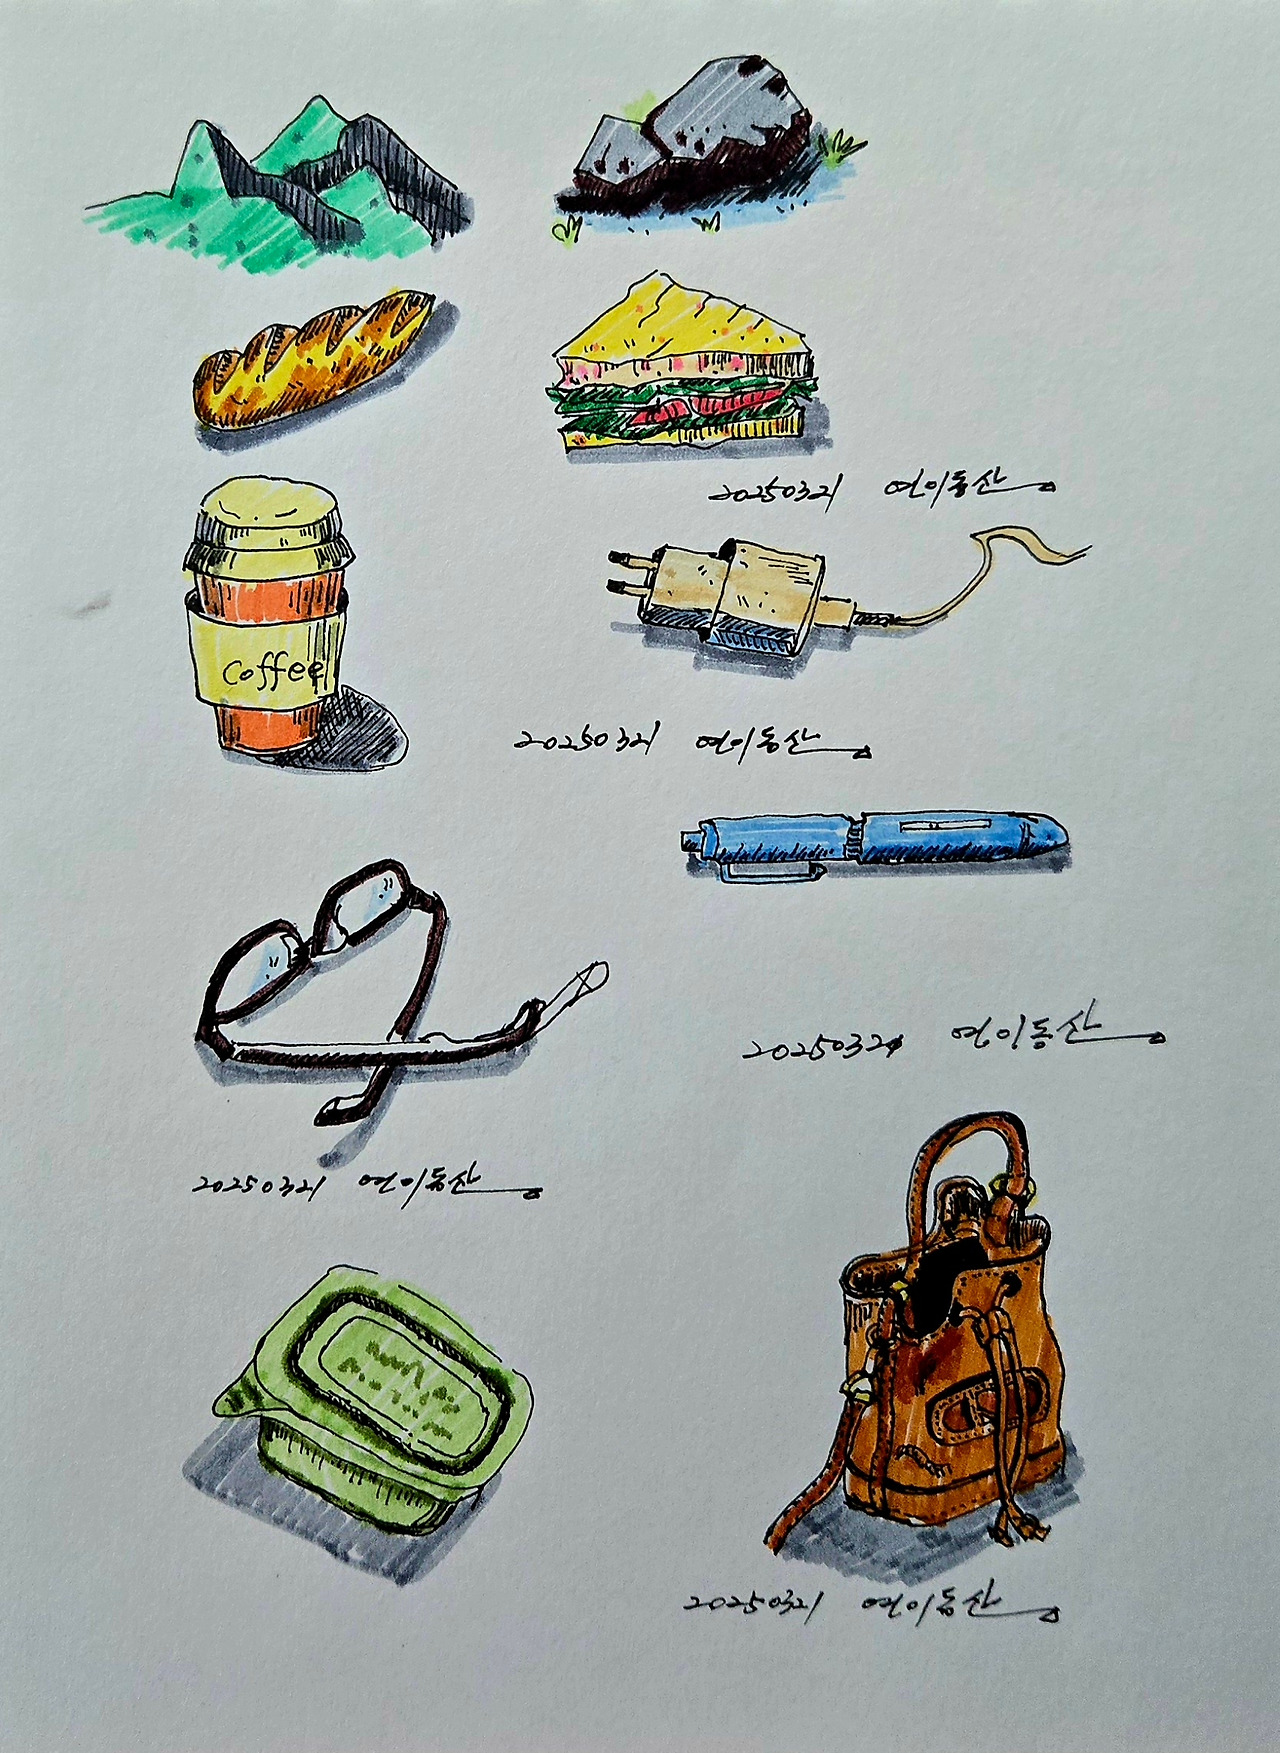 20250321 연이동산
Coffee
20250321 연이동산
20250321 연이동산
20250321 연이동산
20250321 연이동산